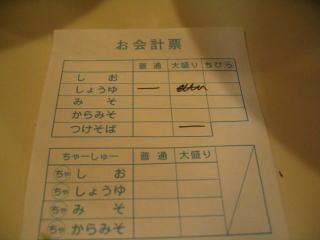 お会計票
普通 大盛り ちびろ
しお
しょうゆ 一
みそ
からみそ
つけそば 一
ちゃーしゅー 普通 大盛り
ちゃ しお
ちゃ しょうゆ
ちゃ みそ
ちゃ からみそ